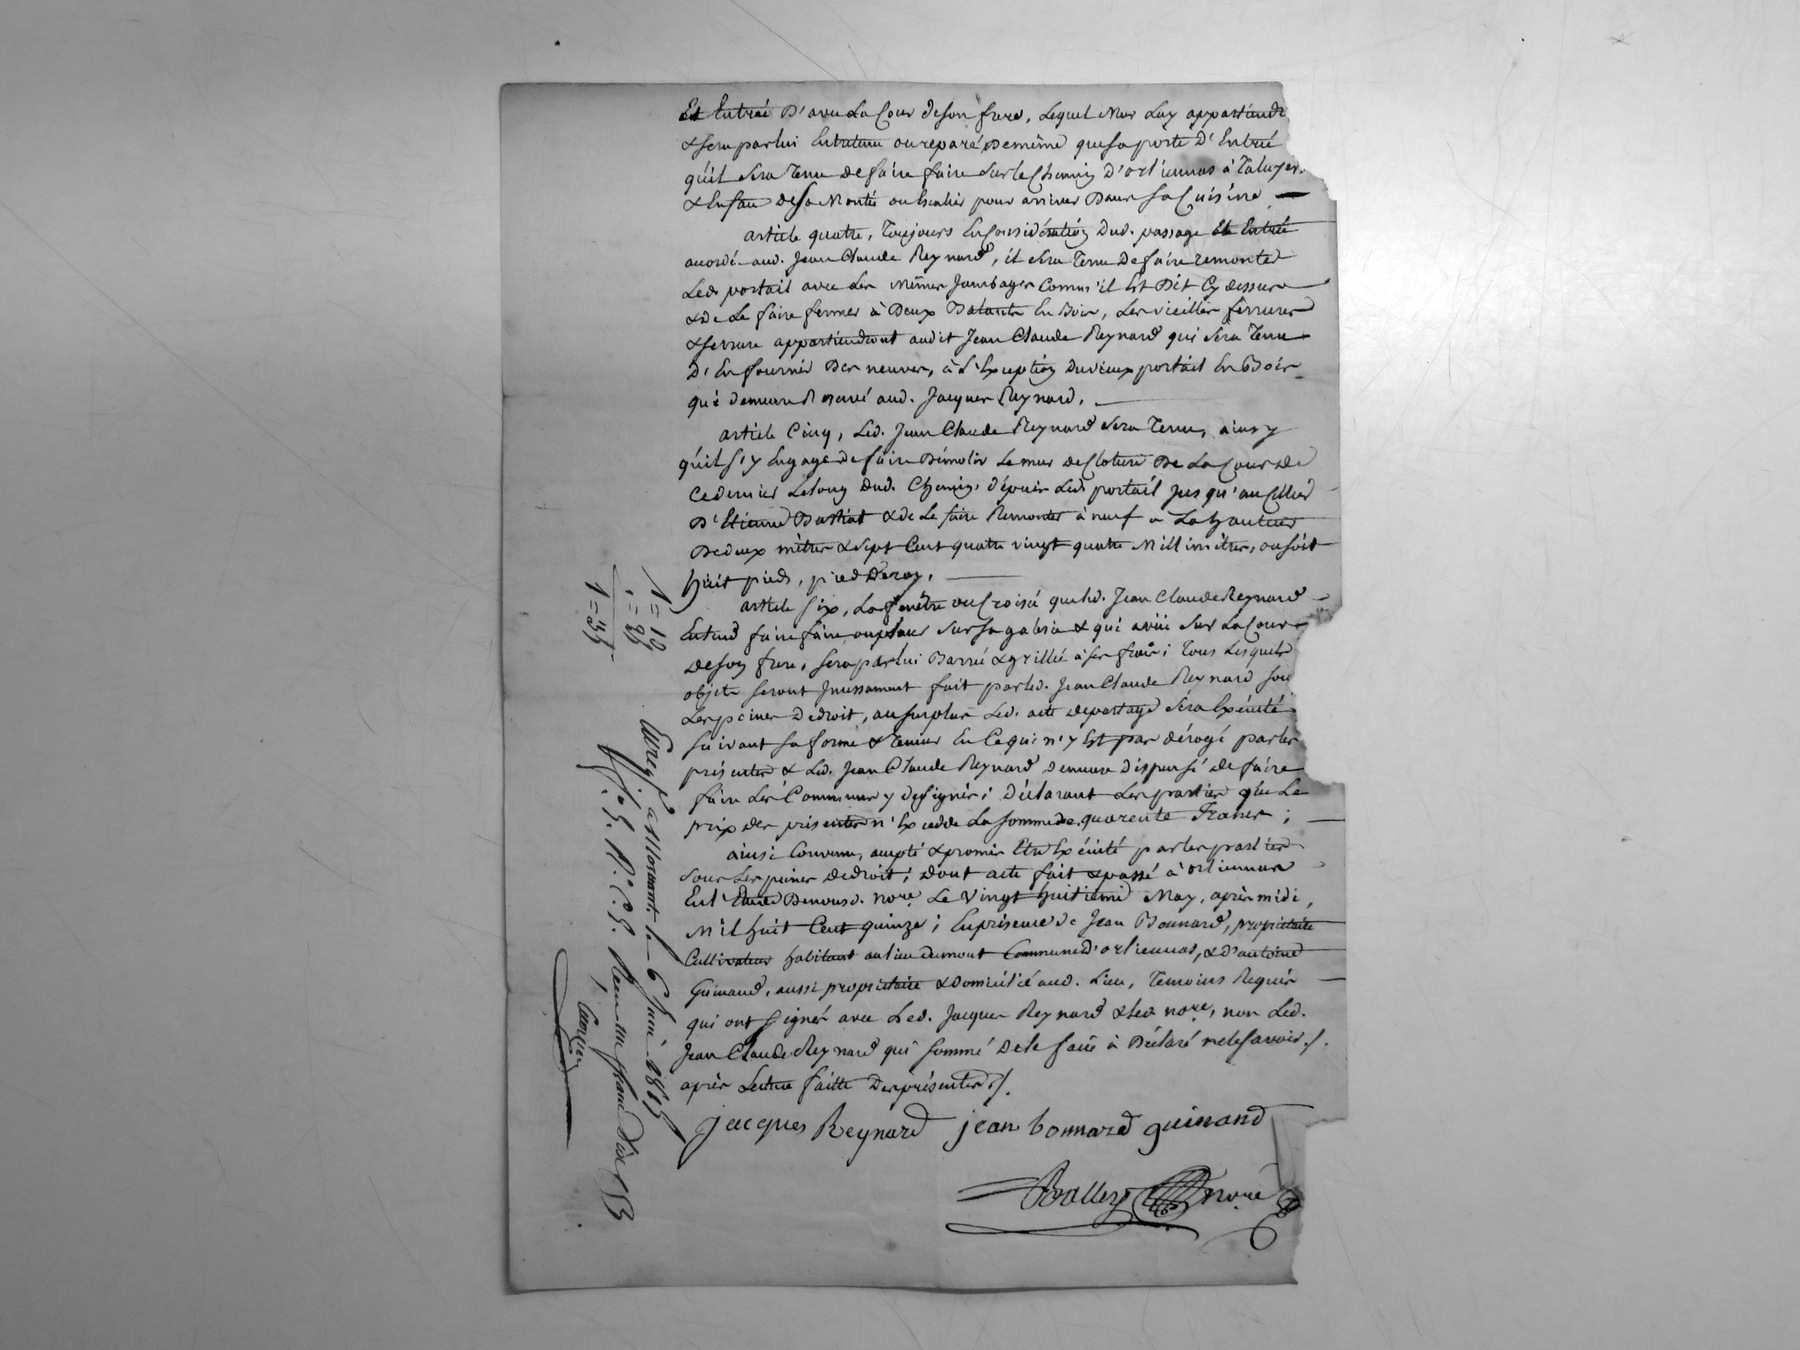 Et Entrée D'avec La Cour de son frere, Lequel Mur Luy appartiendr
& sera par lui Entretenu ou reparé De même que sa porte D'Entrée
qu'il Sera Tenu de faire faire sur le Chemin D'orliennas à Taluyer.
& En face de sa Montée ou Escalier pour arriver Dans sa Cuisine.
article quatre, Toujours En Considération Dud. passage Et Entrée
acordé aud. Jean Claude Reynard, il Sera Tenu De faire remonter
Led. portail avec Les mêmes Jambages Comm'il Est Dit Cy dessus
& de Le faire fermer à Deux Batants En Bois, Les vieilles ferrures
& serrure appartiendront audit Jean Claude Reynard qui Sera Tenu
D'En fournir Des neuves, à L'Exception Du vieux portail En Bois
qui demeure Reservé aud. Jacques Reynard.
article Cinq, Led. Jean Claude Reynard Sera Tenu, ainsy
qu'il s'y Engage de faire Démolir Le mur de Cloture De La Cour de
Ce dernier Le Long Dud. Chemin, dépuis Led. portail Jusqu'au Cellier
D'Etienne & de Le faire Remonter à neuf a La hauteur
De deux mètres & sept Cent quatre vingt quatre Millimètres, ou soit
huit pieds, pied De roy.
article Six, La fenêtre ou Croisée que Led. Jean Claude Reynard
Entend faire faire ou placer Sur sa galerie & qui a vüe Sur La Cour
De son frere, sera par lui Barrée & grillée à ses frais; Tous Lesquels
objets Seront Incessament fait par Led. Jean Claude Reynard sous
Les peines De droit, au surplus Led. acte de partage Sera Exécuté
suivant sa forme & Teneur En Ce qui n'y Est pas dérogé par les
présentes & Led. Jean Claude Reynard demeure dispensé de faire
faire Les Communs y designés; Déclarant Les parties que Le
prix des présentes n'Excedde La somme de quarente Francs;
ainsi Convenu, accepté & promis Etre Exécuté par les parties
Sous Les peines De droit; Dont acte fait & passé à orliennas
En L'Etude De nousd. nore. Le Vingt huitieme May, après midi,
Mil huit Cent quinze; En présence de Jean Bonnard, propriétaire
Cultivateur habitant au lieu du mont Commune d'orliennas, & D'antoine
Guinand, aussi propriétaire & Domicilié aud. Lieu, Temoins Requis
qui ont signés avec Led. Jacques Reynard & Led. nore, non Led.
Jean Claude Reynard qui sommé De le faire à Déclaré ne le savoir ./.
après Lecture faitte Des présentes ./.
jacques Reynard jean bonnard guinand
nore
Enregé à Mornant le 6 Juin 1815
Reçu un franc dix
1 = 10